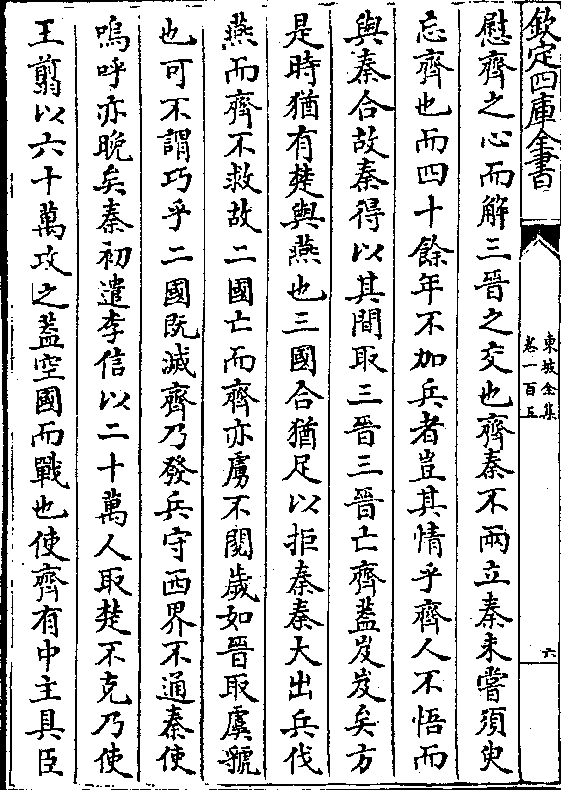 欽定四庫全書
東坡全集
卷一百五
六
慰齊之心而解三晉之交也齊秦不兩立秦未嘗須臾
忘齊也而四十餘年不加兵者豈其情乎齊人不悟而
與秦合故秦得以其間取三晉三晉亡齊蓋岌岌矣方
是時猶有楚與燕也三國合猶足以拒秦秦大出兵伐
燕而齊不救故二國亡而齊亦虜不閱歲如晉取虞虢
也可不謂巧乎二國既滅齊乃發兵守西界不通秦使
嗚呼亦晚矣秦初遣李信以二十萬人取楚不克乃使
王翦以六十萬攻之蓋空國而戰也使齊有中主具臣